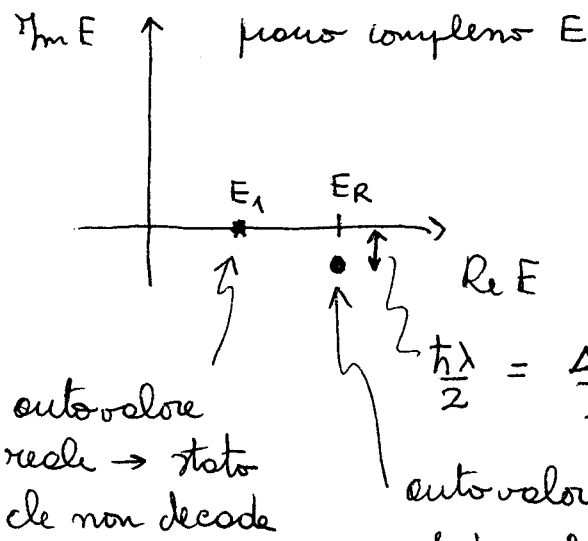 Im E
piano complesso E
E₁
E_R
Re E
ħλ/2 =
autovalore
reale → stato
che non decade
autovalor